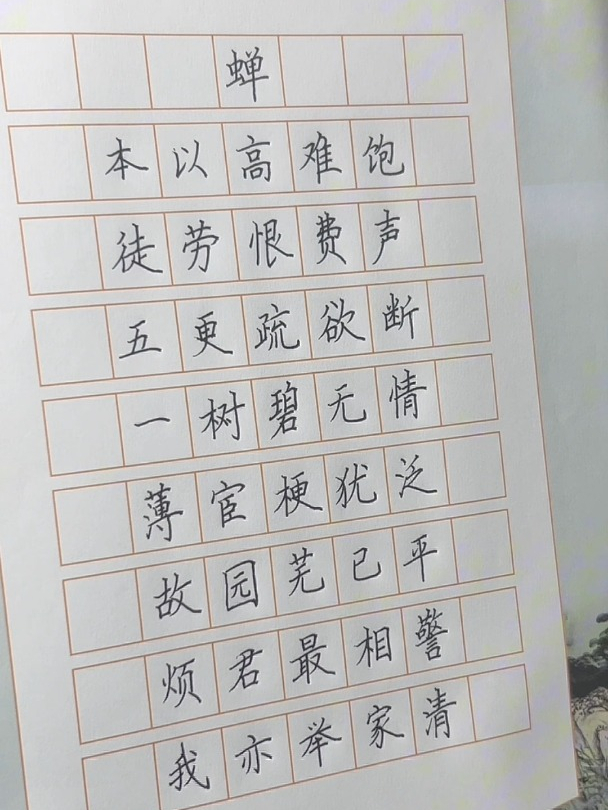 蝉
本以高难饱
徒劳恨费声
五更疏欲断
一树碧无情
薄宦梗犹泛
故园芜已平
烦君最相警
我亦举家清